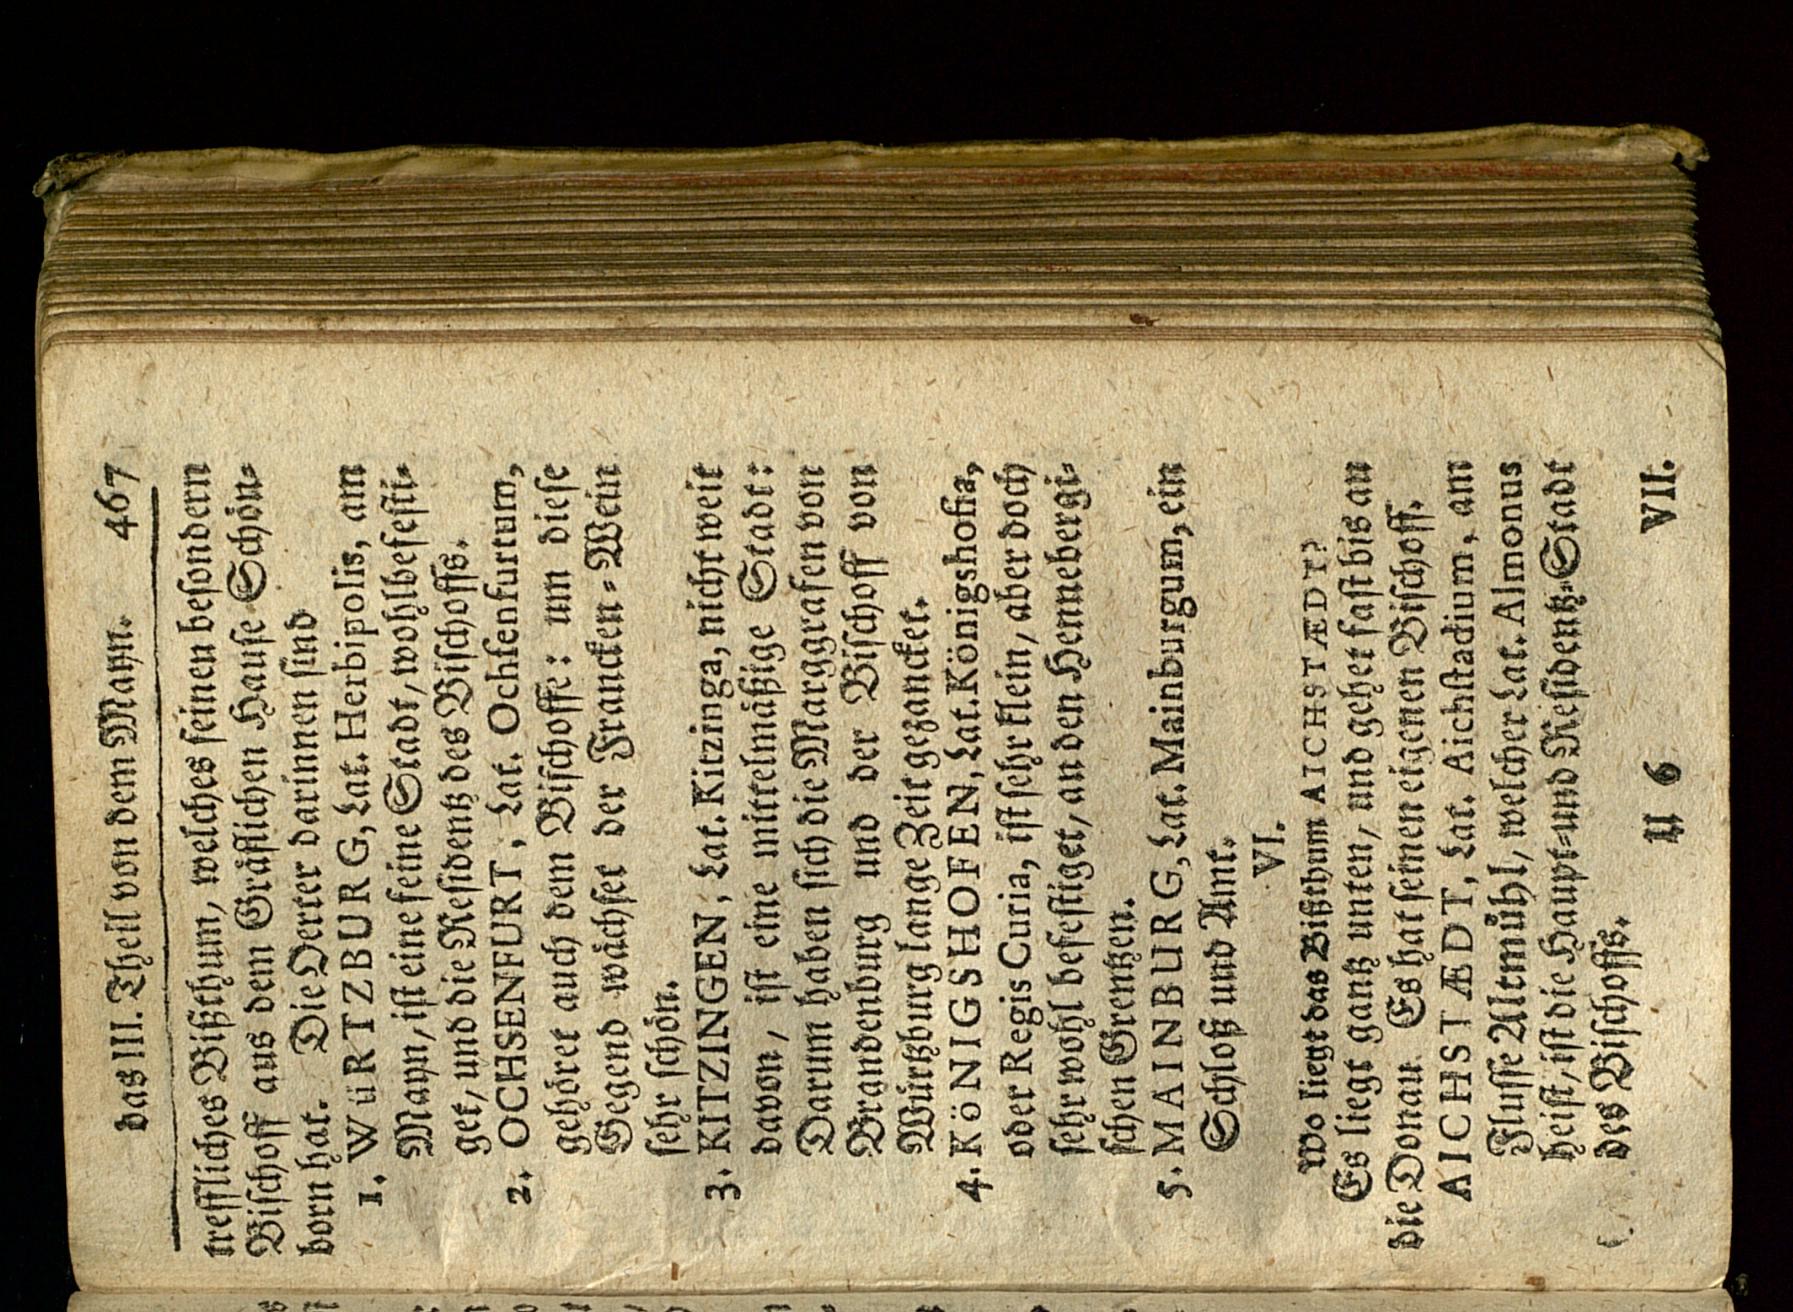 das III. Theil von dem Mayn. 467
treffliches Bißthum, welches seinen besondern
Bischoff aus dem Gräflichen Hause Schön-
born hat. Die Oerter darinnen sind
1. WüRTZBURG, Lat. Herbipolis, am
Mayn, ist eine feine Stadt, wohlbefesti-
get, und die Residentz des Bischoffs.
2. OCHSENFURT, Lat. Ochsenfurtum,
gehöret auch dem Bischoffe: um diese
Gegend wächset der Francken-Wein
sehr schön.
3. KITZINGEN, Lat. Kitzinga, nicht weit
davon, ist eine mittelmäßige Stadt:
Darum haben sich die Marggrafen von
Brandenburg und der Bischoff von
Würtzburg lange Zeit gezancket.
4. KöNIGSHOFEN, Lat. Königshofia,
oder Regis Curia, ist sehr klein, aber doch
sehr wohl befestiget, an den Hennebergi-
schen Grentzen.
5. MAINBURG, Lat. Mainburgum, ein
Schloß und Amt.
VI.
Wo liegt das Bißthum AICHSTÆDT?
Es liegt gantz unten, und gehet fast bis an
die Donau. Es hat seinen eigenen Bischoff.
AICHSTÆDT, Lat. Aichstadium, am
Flusse Altmühl, welcher Lat. Almonus
heist, ist die Haupt-und Residentz-Stadt
des Bischoffs.
U 6 VII.